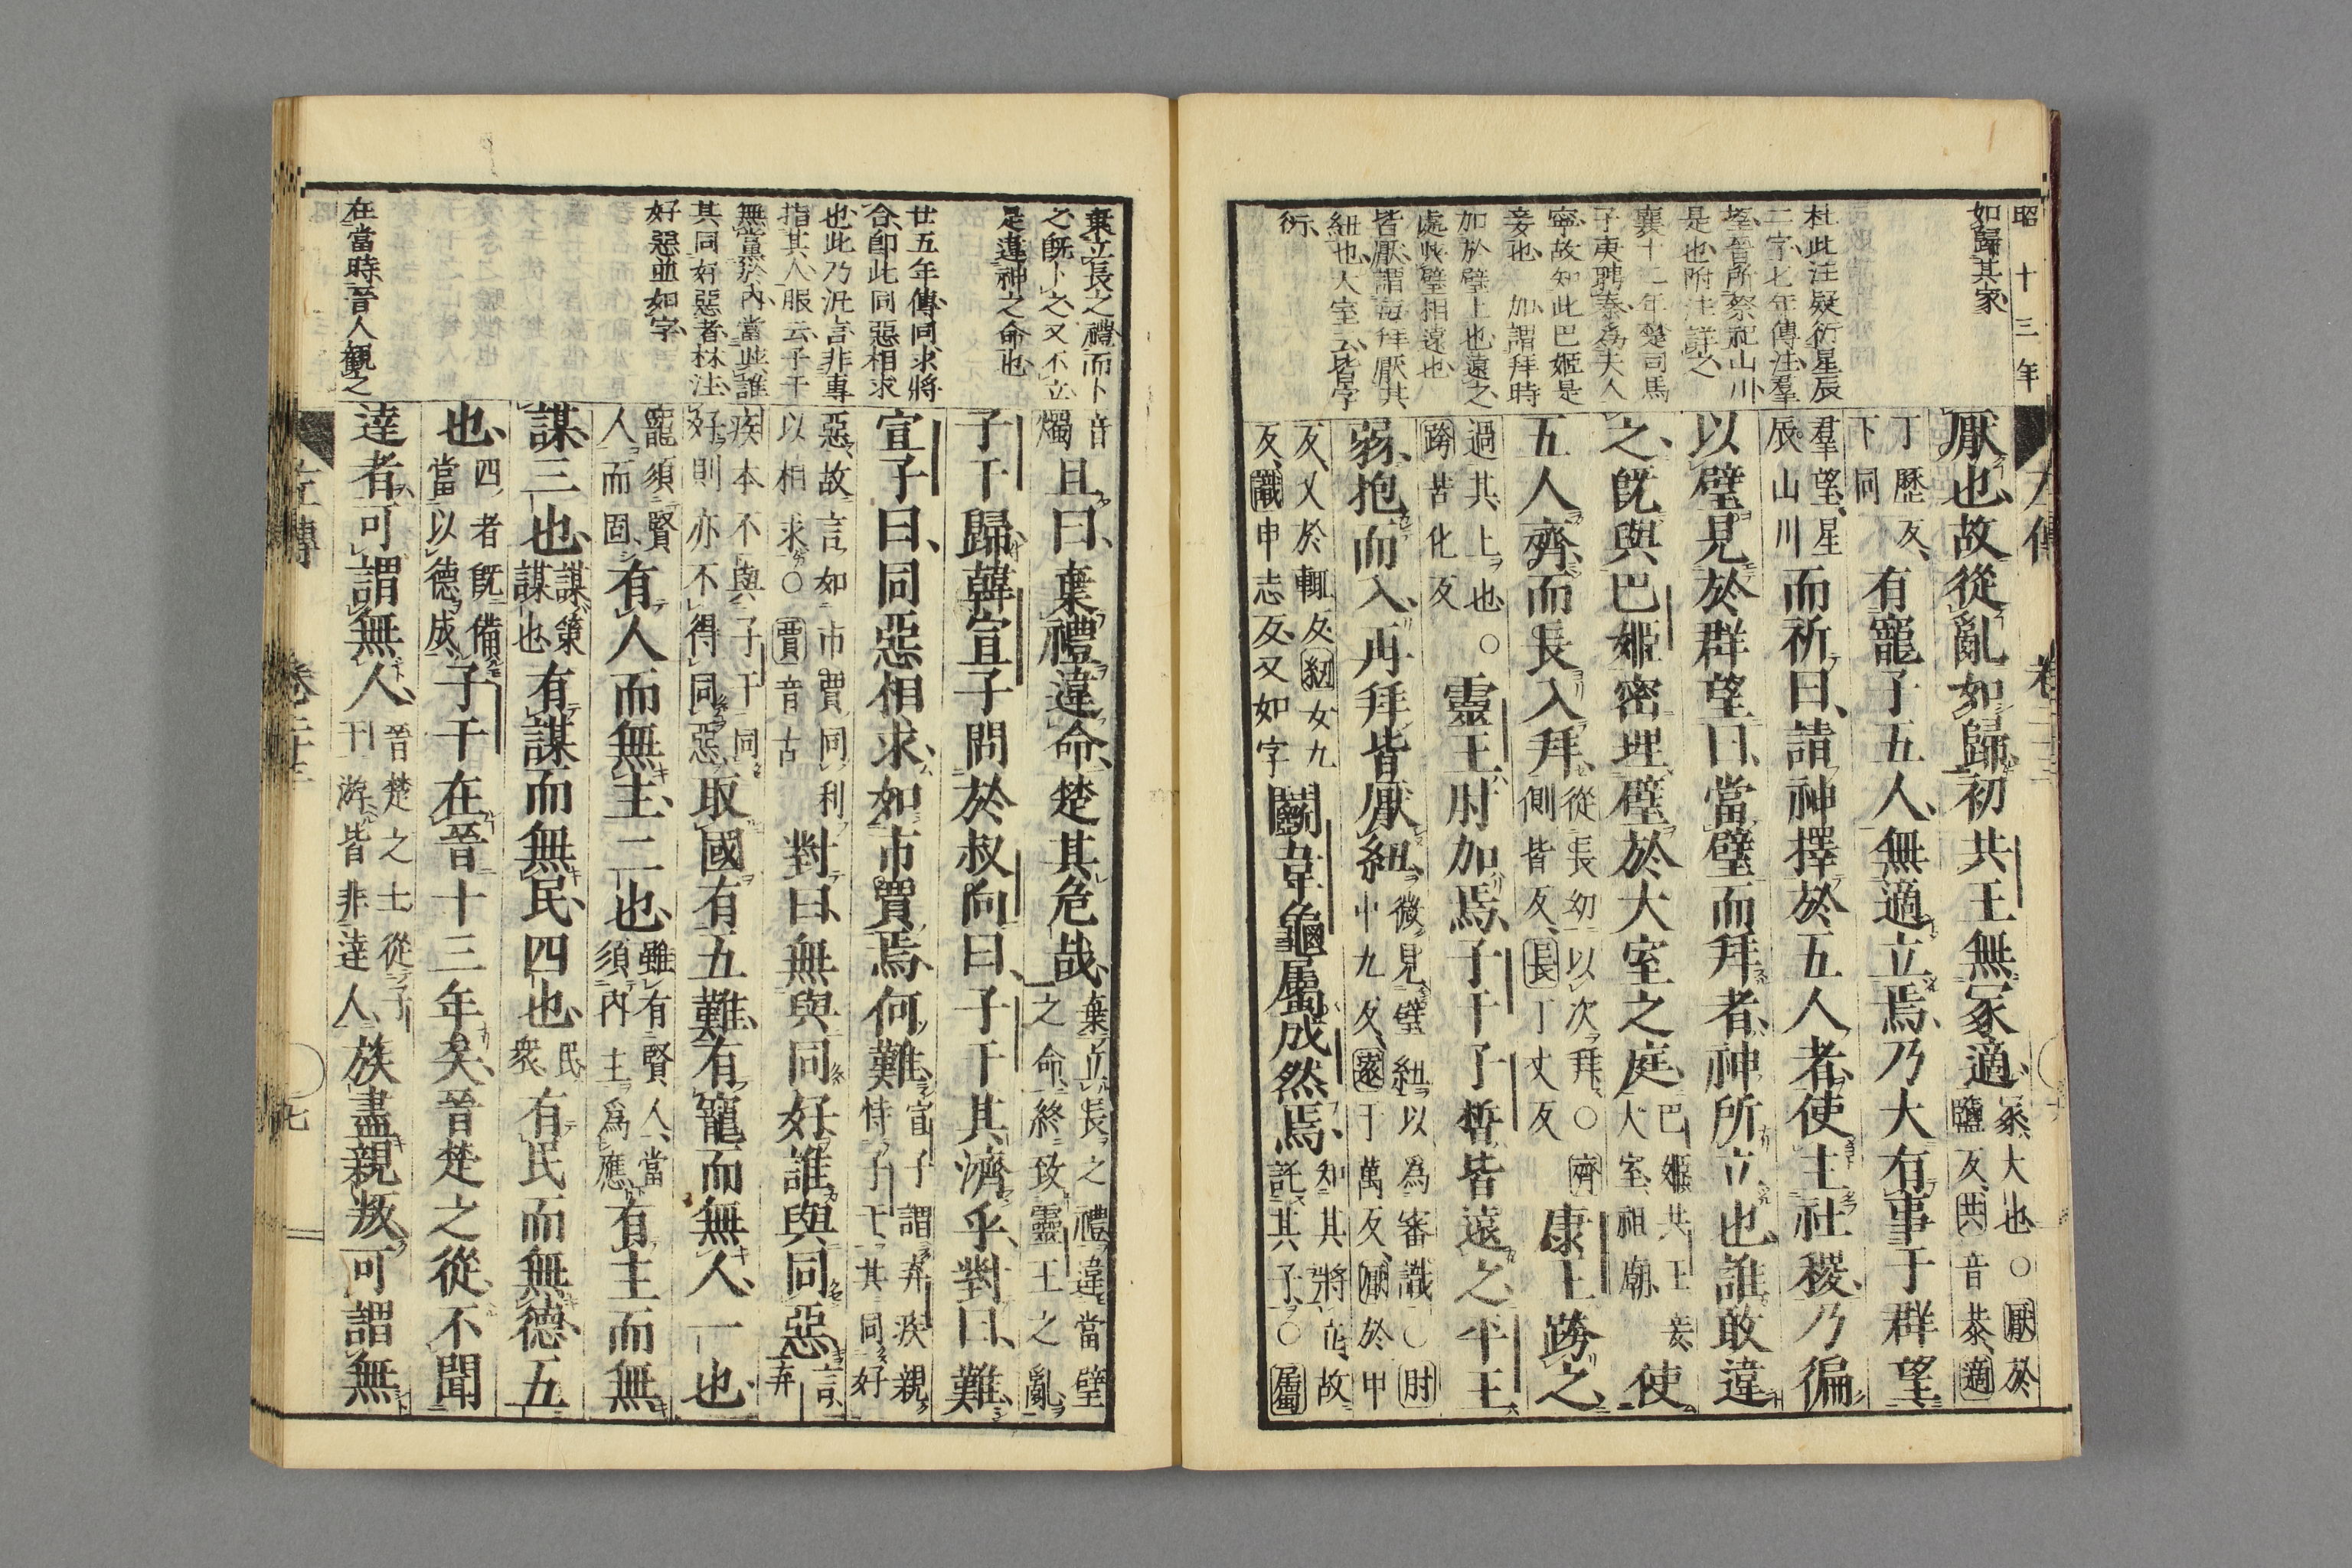 昭十三年
如歸其家
杜此注疑衍星辰
二字七年傳注羣
望晉所祭祀山川
是也附注詳之
襄十二年楚司馬
子庚聘秦爲夫人
寧故知此巴姬是
妾也 加謂拜時
加於璧上也遠之
處收璧相遠也
皆厭謂每拜厭其
紐也大室云皆字
衍
厭也故從亂如歸初共王無冢適
冢大也○厭於
鹽反共音恭適
丁歷反
下同
有寵子五人無適立焉乃大有事于群望
羣望星
辰山川
而祈曰請神擇於五人者使主社稷乃徧
以璧見於群望曰當璧而拜者神所立也誰敢違
之既與巴姬密埋璧於大室之庭
巴姬共王妾
大室祖廟
使
五人齊而長入拜
從長幼以次拜○齊
側皆反長丁丈反
康王跨之
過其上也○
跨苦化反
靈王肘加焉子干子晳皆遠之平王
弱抱而入再拜皆厭紐
微見璧紐以為審識○肘
中九反遠于萬反厭於甲
反又於輒反紐女九
反識申志反又如字
鬬韋龜屬成然焉
知其將立故
託其子○屬
棄立長之禮而卜
之既卜之又不立
是違神之命也
廿五年傳同求將
合即此同惡相求
也此乃汎言非專
指其人服云子干
無黨於内當與誰
其同好惡者林注
好惡並如字
在當時晉人觀之
音
燭
且曰棄禮違命楚其危哉
棄立長之禮違當璧
之命終致靈王之亂
子干歸韓宣子問於叔向曰子干其濟乎對曰難
宣子曰同惡相求如市賈焉何難
宣子謂弃疾親
恃子干其同好
惡故言如市賈同利
以相求○賈音古
對曰無與同好誰與同惡
言弃
疾本不與子干同
好則亦不得同惡
取國有五難有寵而無人一也
寵須賢
人而固
有人而無主二也
雖有賢人當
須內主爲應
有主而無
謀三也
謀策
謀也
有謀而無民四也
民
衆
有民而無德五
也
四者既備
當以德成
子干在晉十三年矣晉楚之從不聞
達者可謂無人
晉楚之士從子
干游皆非達人
族盡親叛可謂無
左傳
卷二十三
七